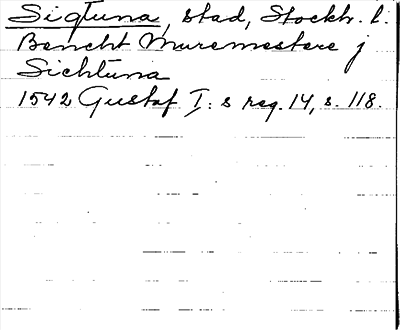 Sigtuna, stad, Stockh. l.
Bencht Muremestere j
Sichtuna
1542 Gustaf I:s reg. 14, s. 118.